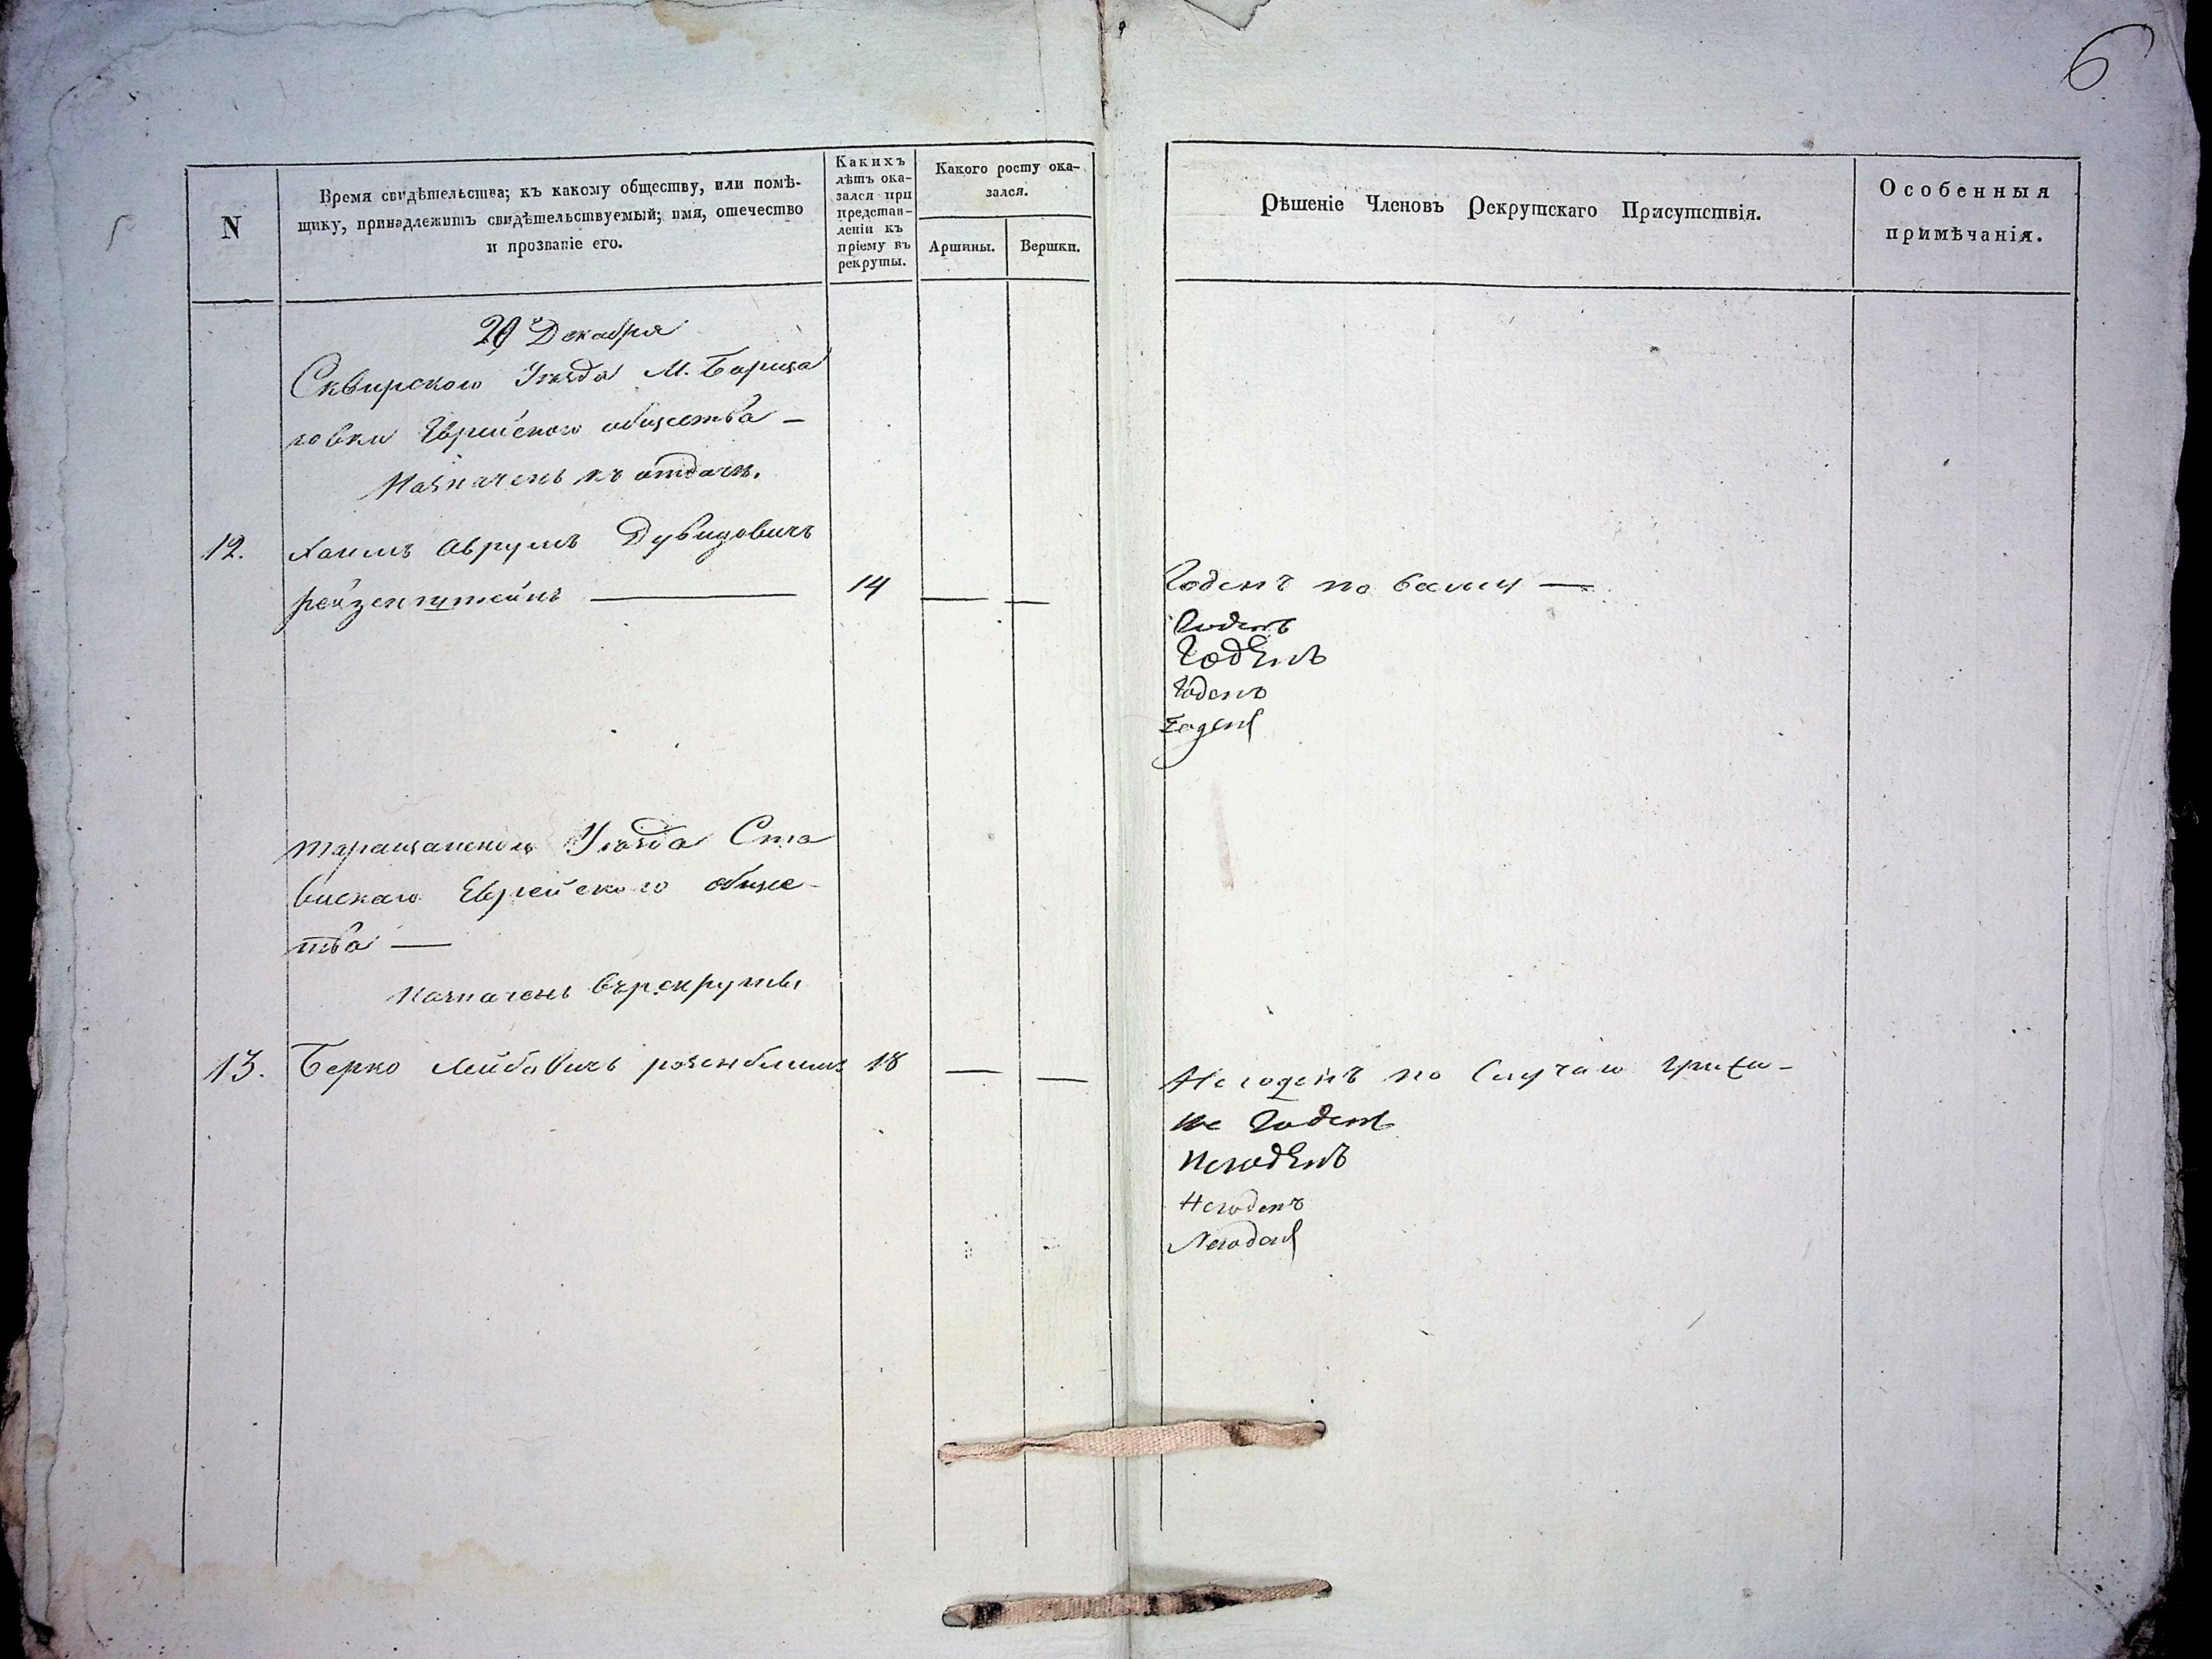 6
N
Время свидѣтельства; къ какому обществу, или помѣ-
щику, принадлежитъ свидѣтельствуемый; имя, отечество
и прозваніе его.
Какихъ
лѣтъ ока-
зался при
представ-
леніи къ
пріему въ
рекруты.
Какого росту ока-
зался.
Аршины.
Вершки.
Рѣшеніе Членовъ Рекрутскаго Присутствія.
Особенныя
примѣчанія.
Декабря
Сквирского Уѣзда М. Борща
говки Еврейского общества —
Назначенъ къ отдачи.
12. Хаимъ Аврумъ Дувидовичъ
рейзенштейнъ — 14 — —
Годенъ по
Годенъ
Годенъ
Годенъ
Таращанского Уѣзда Ста
вискаго Еврейского обще-
тва —
Назначенъ въ рекруты
13. Берко Лейбовичъ 18 — —
Негоденъ по Случаю
не Годенъ
Негоденъ
Негоденъ